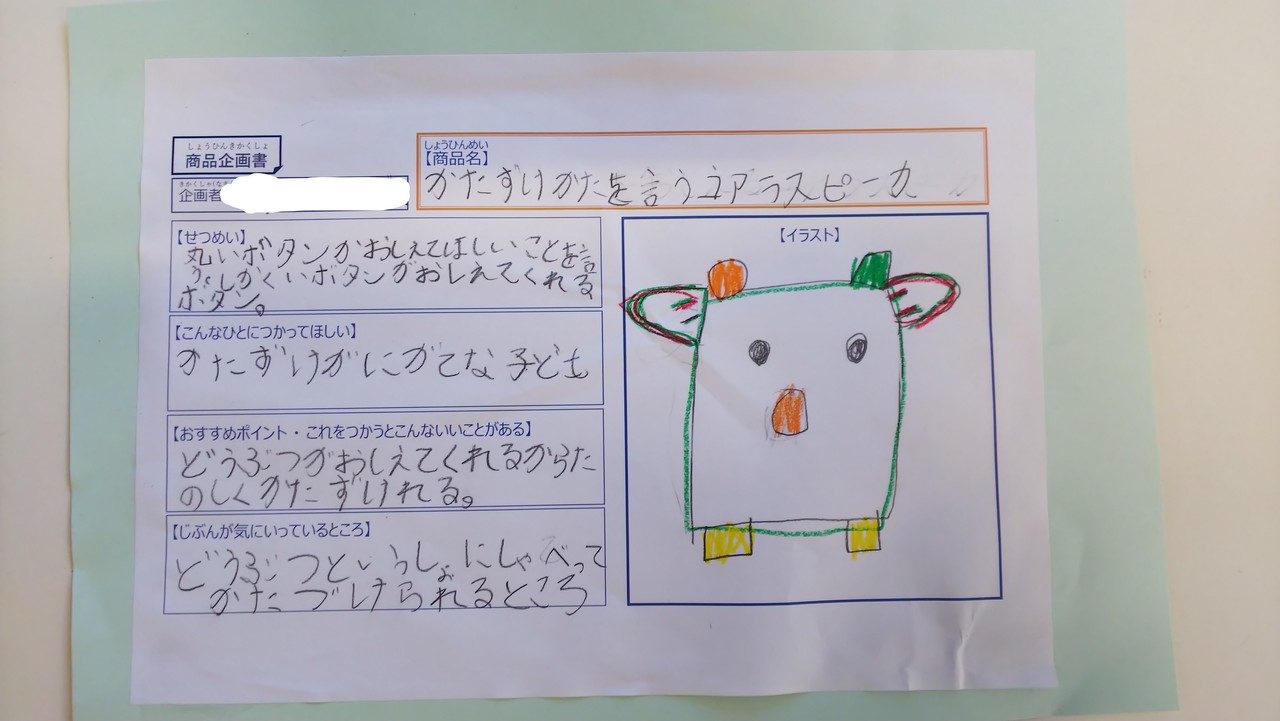 しょうひんきかくしょ
商品企画書
企画者
しょうひんめい
【商品名】
かたずけかたを言うコアラスピーカ
【せつめい】
丸いボタンがおしえてほしいことを言
う。しかくいボタンがおしえてくれる
ボタン。
【こんなひとにつかってほしい】
かたずけがにがてな子ども
【おすすめポイント・これをつかうとこんないいことがある】
どうぶつがおしえてくれるからた
のしくかたずけれる。
【じぶんが気にいっているところ】
どうぶつといっしょにしゃべって
かたづけられるところ
【イラスト】